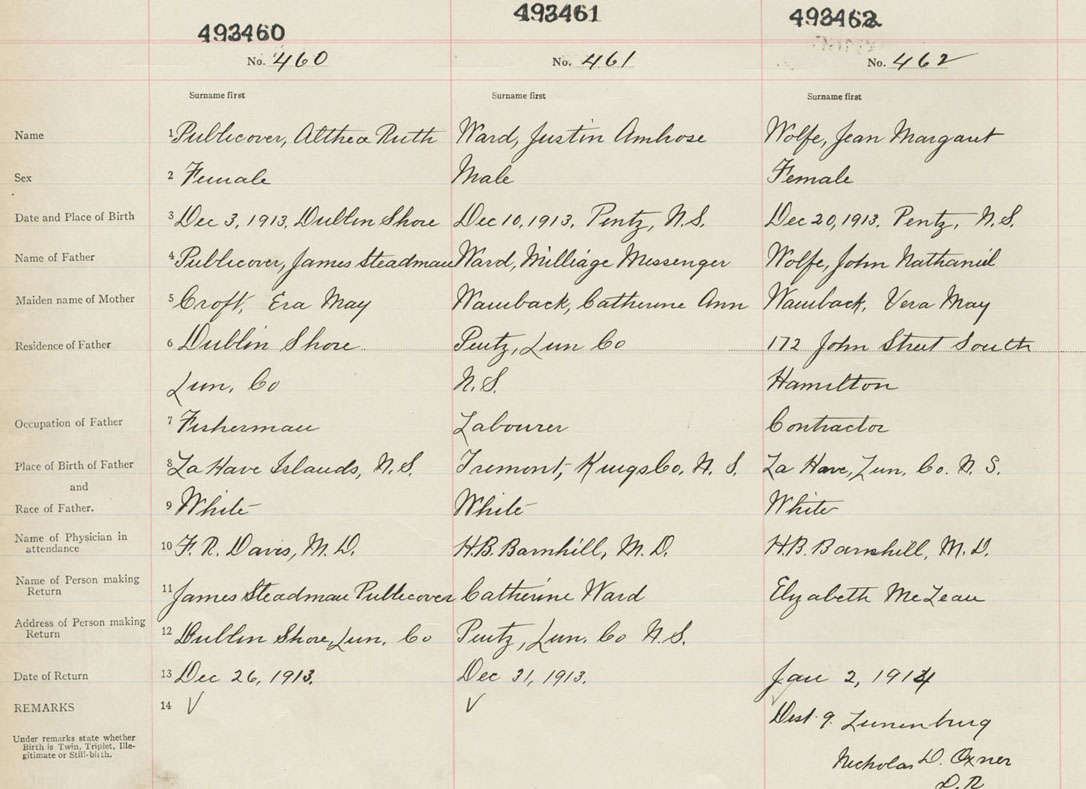 493460 493461 493462
No. 460 No. 461 No. 462
Surname first Surname first Surname first
Name 1 Publicover, Althea Ruth Ward, Justin Ambrose Wolfe, Jean Margaret
Sex 2 Female Male Female
Date and Place of Birth 3 Dec 3, 1913, Dublin Shore Dec 10, 1913, Pentz, N.S. Dec 20, 1913, Pentz, N.S.
Name of Father 4 Publicover, James Steadman Ward, Milliage Messenger Wolfe, John Nathaniel
Maiden name of Mother 5 Croft, Era May Wamback, Catherine Ann Wamback, Vera May
Residence of Father 6 Dublin Shore Pentz, Lun Co 172 John Street South
Lun, Co N.S. Hamilton
Occupation of Father 7 Fisherman Labourer Contractor
Place of Birth of Father 8 La Have Islands, N.S. Tremont, Kings Co, N.S. La Have, Lun. Co. N.S.
and
Race of Father. 9 White White White
Name of Physician in
attendance 10 F. R. Davis, M.D. H.B. Barnhill, M.D. H.B. Barnhill, M.D.
Name of Person making
Return 11 James Steadman Publicover Catherine Ward Elizabeth McLean
Address of Person making
Return 12 Dublin Shore, Lun. Co Pentz, Lun. Co N.S.
Date of Return 13 Dec 26, 1913. Dec 31, 1913. Jan 2, 1914
REMARKS 14 √ √
Dist. 9. Lunenburg
Under remarks state whether
Birth is Twin, Triplet, Ille-
gitimate or Still-birth.
Nicholas D. Oxner
D.R